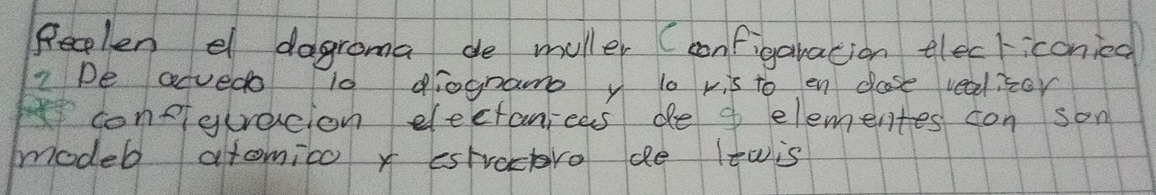 Realen el dagrama de muller (configaracion electiconica)
2 De acuedo lo diognamo y lo visto en dase vealizar
configuracion electanicas de 8 elementes con son
modeb atomico y estroctoro de lewis